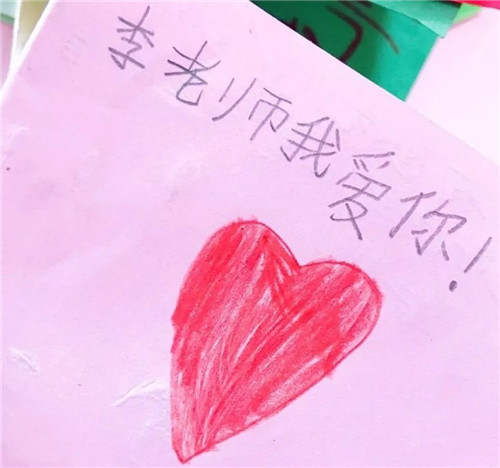 李老师我爱你!